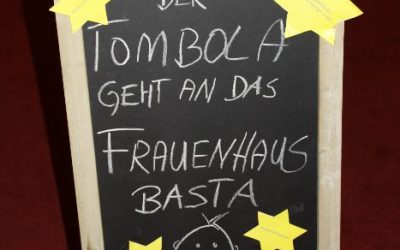 DER
TOMBOLA
GEHT AN DAS
FRAUENHAUS
BASTA